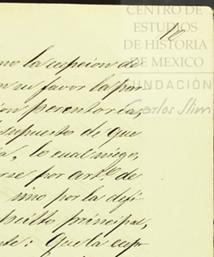 CENTRO DE
ESTUDIOS
DE HISTORIA
DE MEXICO
FUNDACIÓN
Carlos Slim
mo la espcion de
su favor la por
ion perentoria,
supuesto de que
a, lo cual niego,
rse por artº. de
sino por la defi
principal,
te: Que la esp